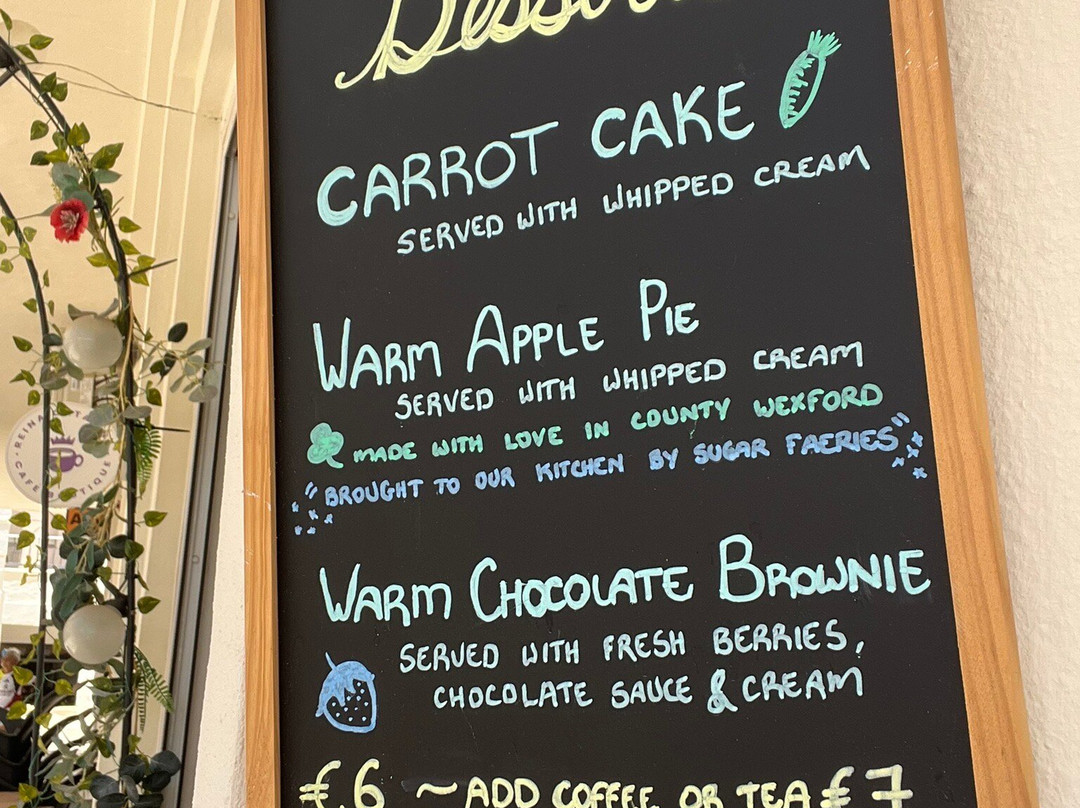 CARROT CAKE
SERVED WITH WHIPPED CREAM
WARM APPLE PIE
SERVED WITH WHIPPED CREAM
MADE WITH LOVE IN COUNTY WEXFORD
"BROUGHT TO OUR KITCHEN BY SUGAR FAERIES"
WARM CHOCOLATE BROWNIE
SERVED WITH FRESH BERRIES,
CHOCOLATE SAUCE & CREAM
€.6 ~ ADD COFFEE OR TEA €7